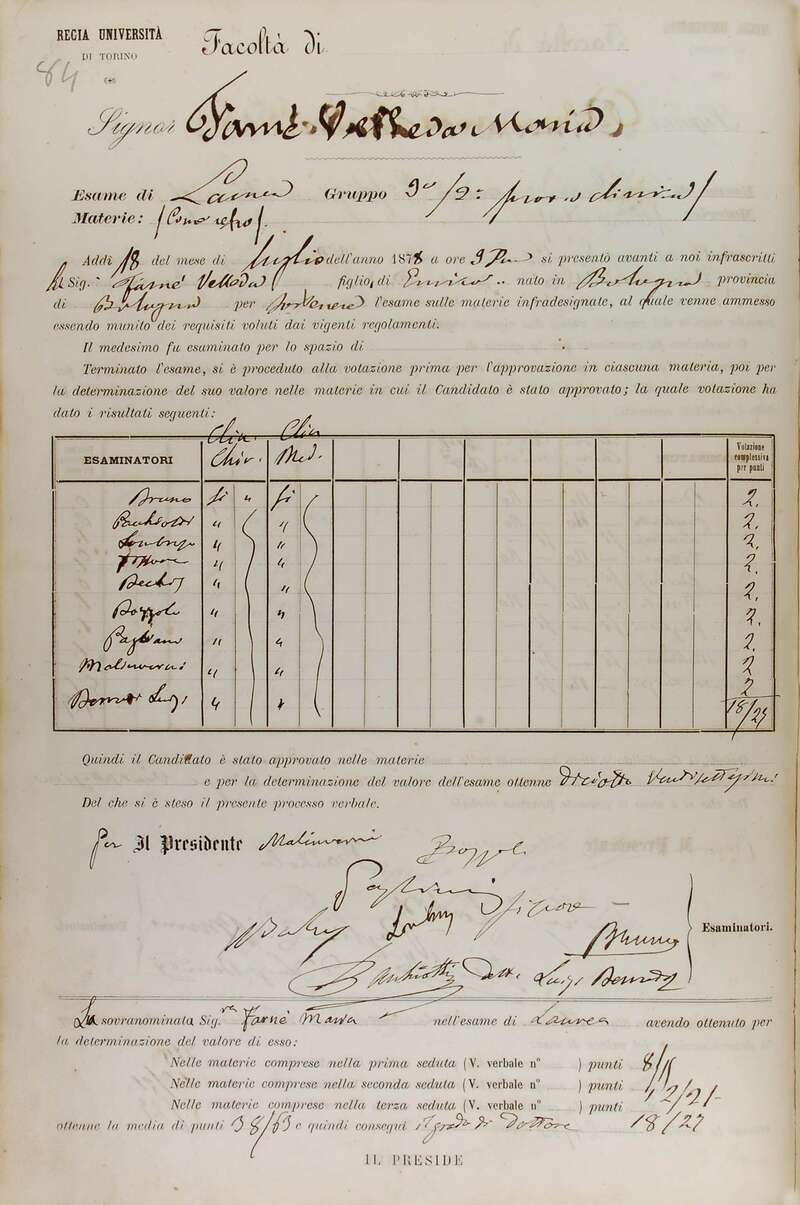 REGIA UNIVERSITÀ
DI TORINO
Facoltà di
84
Signor Farnè Velleda Maria
Esame di Laurea Gruppo 3° / 2ª prova clinica /
Materie:
Addì 18 del mese di luglio dell'anno 1878 a ore 3 si presentò avanti a noi infrascritti
la Sig.ª Farnè Velleda figlio, di Enrico nato in Bologna provincia
di Bologna per sostenere l'esame sulle materie infradesignate, al quale venne ammesso
essendo munito dei requisiti voluti dai vigenti regolamenti.
Il medesimo fu esaminato per lo spazio di
Terminato l'esame, si è proceduto alla votazione prima per l'approvazione in ciascuna materia, poi per
la determinazione del suo valore nelle materie in cui il Candidato è stato approvato; la quale votazione ha
dato i risultati seguenti:
ESAMINATORI Clin. Chir. Clin. Med. Votazione complessiva per punti
Bruno si " si 2.
" " 2.
" " 2.
" " 2.
" " 2.
Bozzolo " " 2.
Pagliani " " 2.
Malinverni " " 2
Luigi " " 2
18/27
Quindi il Candidato è stato approvato nelle materie
e per la determinazione del valore dell'esame ottenne diciotto ventisettesimi
Del che si è steso il presente processo verbale.
per Il Presidente Malinverni
Bozzolo
Pagliani
Bruno
Esaminatori.
Luigi
La sovranominata Sig.ra Farnè Maria nell'esame di Laurea avendo ottenuto per
la determinazione del valore di esso:
Nelle materie comprese nella prima seduta (V. verbale n° ) punti 8/15
Nelle materie comprese nella seconda seduta (V. verbale n° ) punti 12/21
Nelle materie comprese nella terza seduta (V. verbale n° ) punti 18/27
ottenne la media di punti 38/63 e quindi conseguì il grado di Dottore
IL PRESIDE